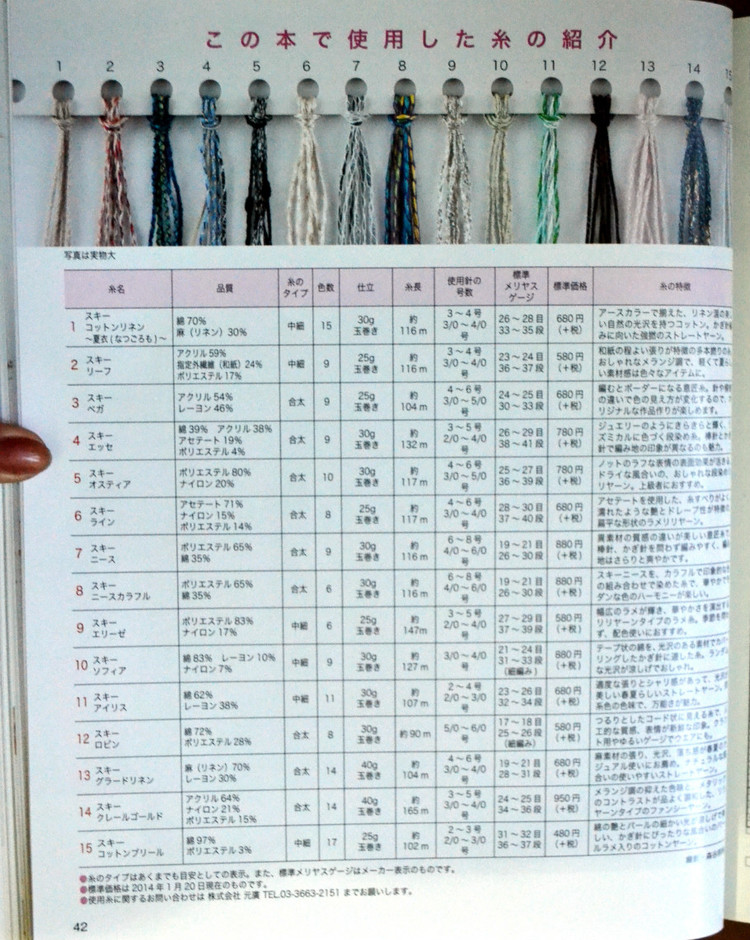 この本で使用した糸の紹介
1 2 3 4 5 6 7 8 9 10 11 12 13 14
写真は実物大
糸名 品質 糸のタイプ 色数 仕立 糸長 使用針の号数 標準メリヤスゲージ 標準価格 糸の特徴
1 スキー コットンリネン 〜夏衣(なつごろも)〜 綿70% 麻(リネン)30% 中細 15 30g 玉巻き 約116m 3〜4号 3/0〜4/0号 26〜28目 33〜35段 680円(+税)
アースカラーで揃えた、リネン混の
い自然の光沢を持つコットン。かぎ
みに向いた強撚のストレートヤーン。
2 スキー リーフ アクリル59% 指定外繊維(和紙)24% ポリエステル17% 中細 9 25g 玉巻き 約116m 3〜4号 3/0〜4/0号 23〜24目 36〜37段 580円(+税)
和紙の程よい張りが特徴の多本撚りの
おしゃれなメランジ調で、軽くて夏ら
い素材感は色々なアイテムに。
3 スキー ベガ アクリル54% レーヨン46% 合太 9 25g 玉巻き 約104m 4〜6号 3/0〜5/0号 24〜25目 30〜33段 680円(+税)
編むとボーダーになる意匠糸。針や
の違いで色の見え方が変化するので、
リジナルな作品作りが楽しめます。
4 スキー エッセ 綿39% アクリル38% アセテート19% ポリエステル4% 合太 9 30g 玉巻き 約132m 3〜5号 2/0〜4/0号 26〜29目 38〜41段 780円(+税)
ジュエリーのようにきらきらと輝く、
ズミカルに色づく段染め糸。棒針とか
針で編み地の印象が異なるのも魅力。
5 スキー オスティア ポリエステル80% ナイロン20% 合太 10 30g 玉巻き 約117m 4〜6号 3/0〜5/0号 25〜27目 36〜39段 780円(+税)
ノットのラフな表情の表面効果が
ドライな風合いの、おしゃれな段染め
リヤーン。上級者におすすめ。
6 スキー ライン アセテート71% ナイロン15% ポリエステル14% 合太 8 25g 玉巻き 約117m 4〜6号 3/0〜4/0号 28〜30目 37〜40段 680円(+税)
アセテートを使用した、糸すべりがよく
濡れたような艶とドレープ性が特徴の
扁平な形状のラメリリヤーン。
7 スキー ニース ポリエステル65% 綿35% 合太 9 30g 玉巻き 約116m 6〜8号 4/0〜6/0号 19〜21目 26〜30段 880円(+税)
異素材の質感の違いが美しい意匠糸
棒針、かぎ針を問わず編みやすく、編
地はさらりと爽やかです。
8 スキー ニースカラフル ポリエステル65% 綿35% 合太 6 30g 玉巻き 約116m 6〜8号 4/0〜6/0号 19〜21目 26〜30段 880円(+税)
スキーニースを、カラフルで印象的な
の組み合わせで染めた糸で、華やかで
ダンな色のハーモニーが楽しい。
9 スキー エリーゼ ポリエステル83% ナイロン17% 中細 6 25g 玉巻き 約147m 3〜5号 2/0〜4/0号 27〜29目 37〜39段 580円(+税)
幅広のラメが輝き、華やかさを演出する
リリヤーンタイプのラメ糸。季節を問
ず、配色使いにおすすめ。
10 スキー ソフィア 綿83% レーヨン10% ナイロン7% 中細 9 30g 玉巻き 約127m 3/0〜4/0号 21〜24目 31〜33段(細編み) 880円(+税)
テープ状の綿を、光沢のある素材でカバ
リングしたかぎ針に適した糸。ランダム
な光沢が涼しげでおしゃれ。
11 スキー アイリス 綿62% レーヨン38% 中細 11 30g 玉巻き 約107m 2〜4号 2/0〜4/0号 23〜26目 32〜34段 680円(+税)
適度な張りとシャリ感があって、光沢が
美しい春夏らしいストレートヤーン。
系色の色味で、万能さが魅力。
12 スキー ロビン 綿72% ポリエステル28% 合太 8 30g 玉巻き 約90m 5/0〜6/0号 17〜18目 25〜26段(細編み) 580円(+税)
つるりとしたコード状に見える糸で、
工的な質感、表情が新鮮な印象。クラフ
ト用やゆるいゲージでウエアにも。
13 スキー グラードリネン 麻(リネン)70% レーヨン30% 合太 14 40g 玉巻き 約104m 4〜6号 3/0〜4/0号 19〜21目 28〜31段 680円(+税)
麻素材の張り、光沢、
ジュアル使いにお薦め。ナチュラルな
合いの使いやすいストレートヤーン。
14 スキー クレールゴールド アクリル64% ナイロン21% ポリエステル15% 合太 14 40g 玉巻き 約165m 3〜5号 3/0〜4/0号 24〜25目 34〜36段 950円(+税)
メランジ調の抑えた色味と、メタリック
のコントラストが品よく調和した、
ヤーンタイプのファンシーヤーン。
15 スキー コットンブリール 綿97% ポリエステル3% 中細 17 25g 玉巻き 約102m 2〜3号 2/0〜3/0号 31〜32目 36〜37段 480円(+税)
綿の艶とパールの細かい光が涼しげで
しい、かぎ針にぴったりな
ルラメ入りのコットンヤーン。
●糸のタイプはあくまでも目安としての表示。また、標準メリヤスゲージはメーカー表示のものです。
●標準価格は2014年1月20日現在のものです。
●使用糸に関するお問い合わせは 株式会社 元廣 TEL.03-3663-2151 までお願いします。
42